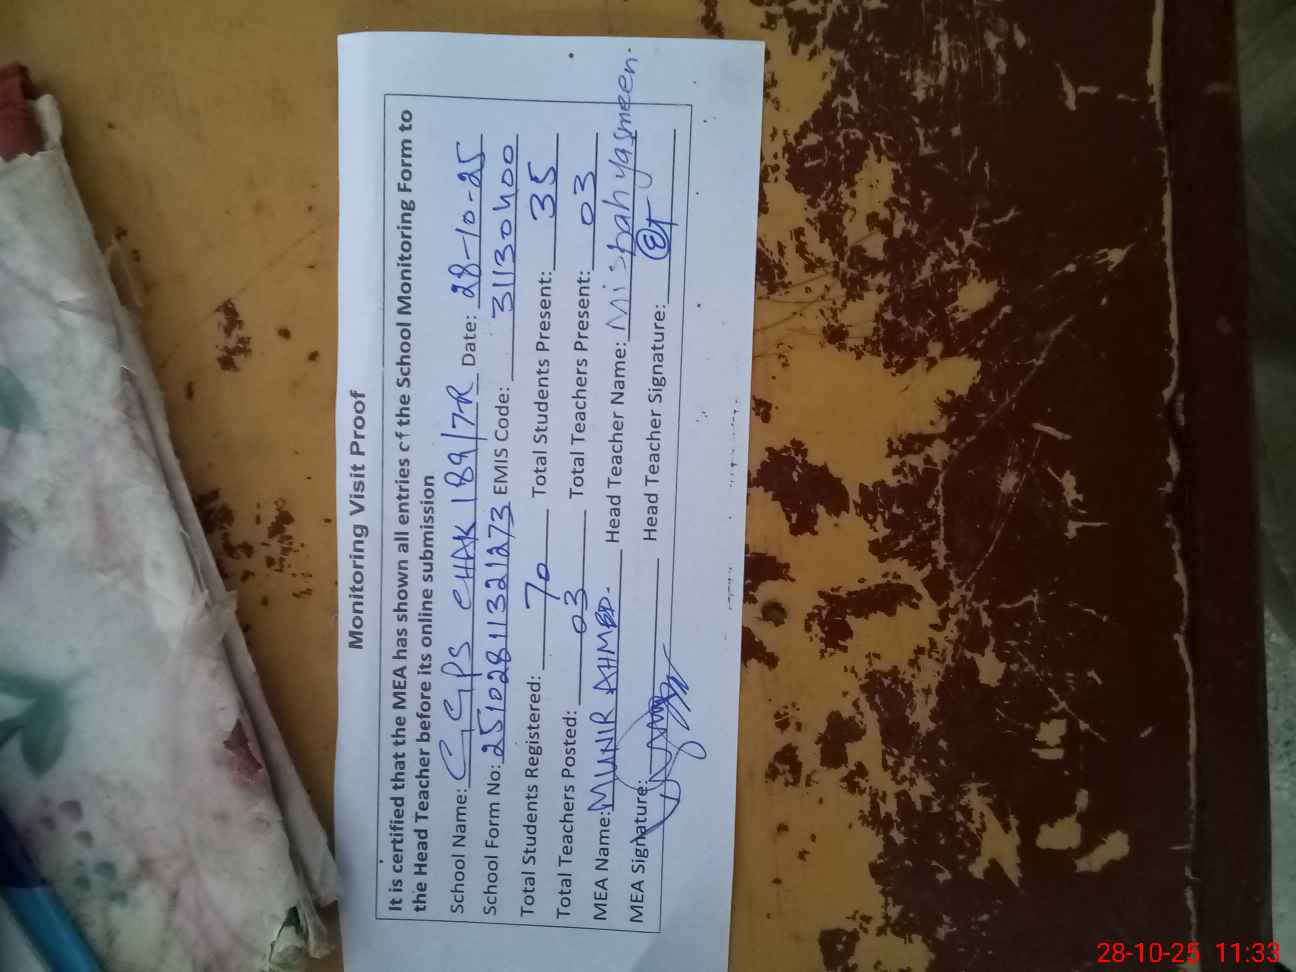 Monitoring Visit Proof
It is certified that the MEA has shown all entries of the School Monitoring Form to
the Head Teacher before its online submission
School Name: GGPS CHAK 189/7R Date: 28-10-25
School Form No: 25102811321273 EMIS Code: 31130400
Total Students Registered: 70 Total Students Present: 35
Total Teachers Posted: 03 Total Teachers Present: 03
MEA Name: MUNIR AHMED. Head Teacher Name: Misbah yasmeen.
MEA Signature: Head Teacher Signature:
28-10-25 11:33